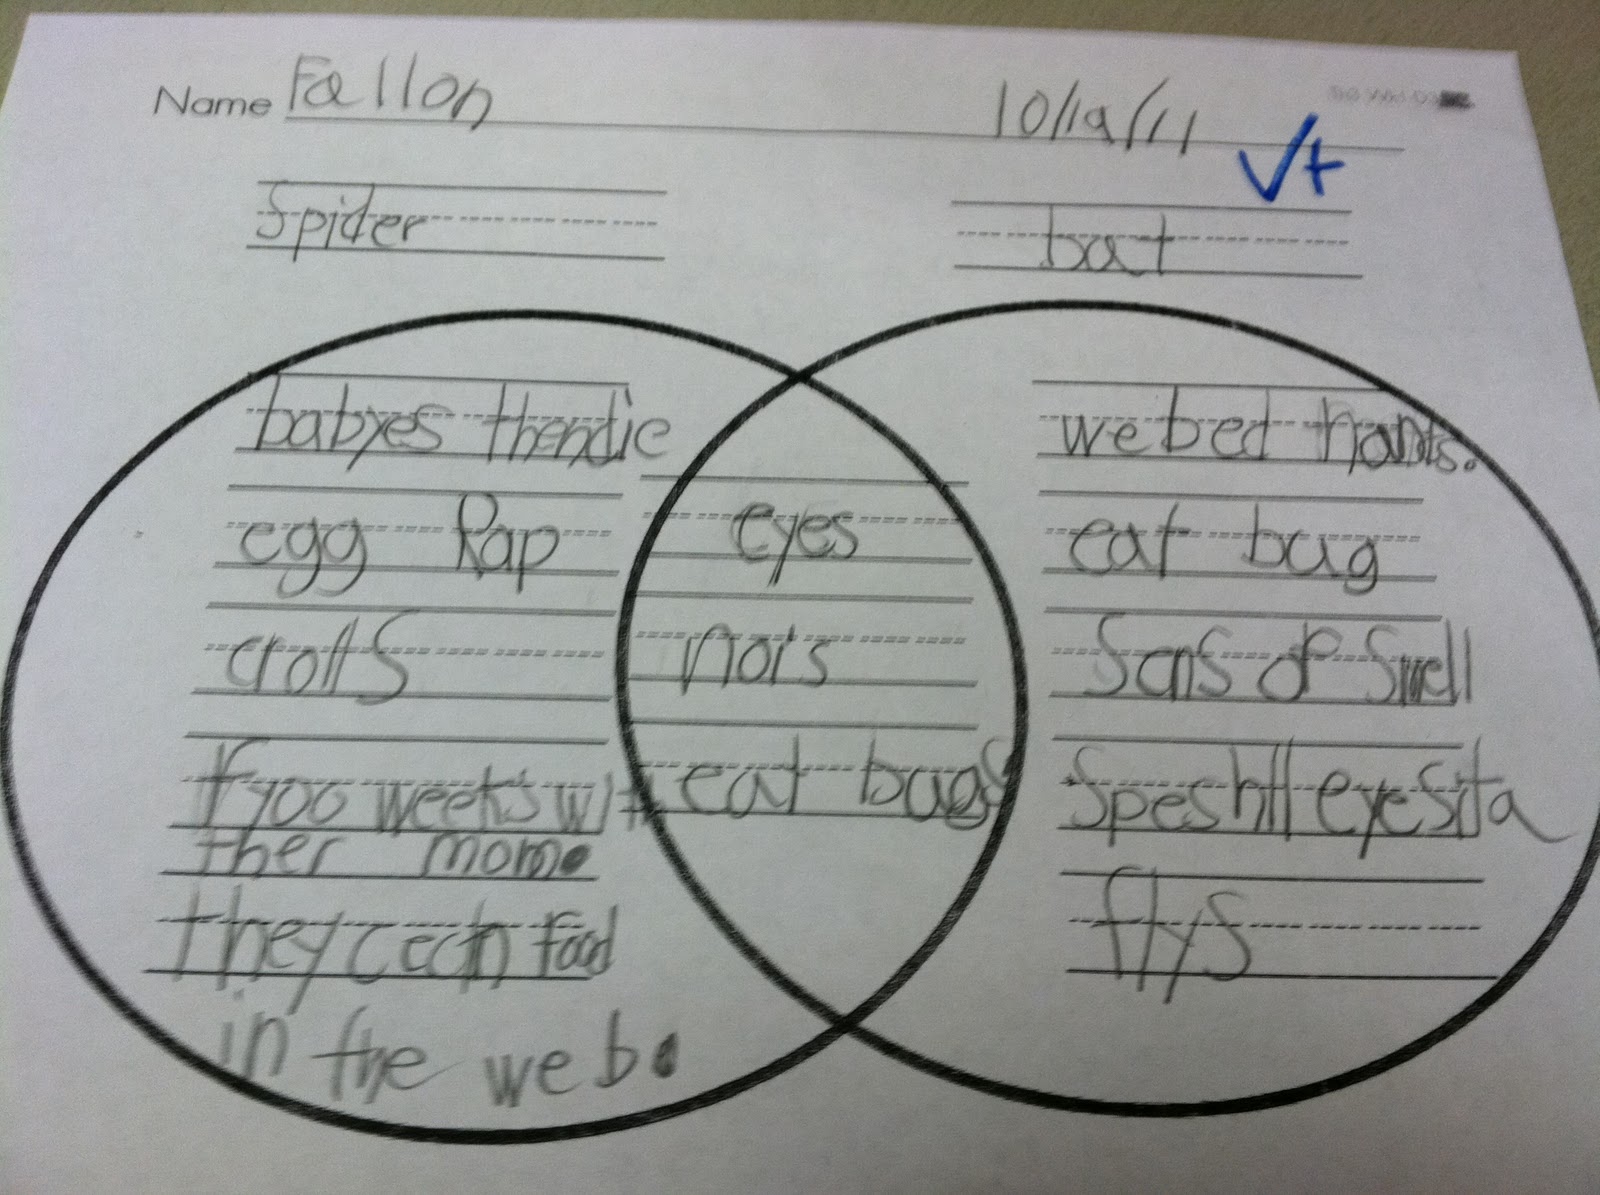 Name Fallon 10/19/11 √+
Spider
bat
babyes thendie
egg Rap
crolls
If yoo weeks with
ther mom.
they cech food
in the web.
eyes
nois
eat bugs
webed hants.
eat bug
Sens of Smell
Speshll eyesita
flys